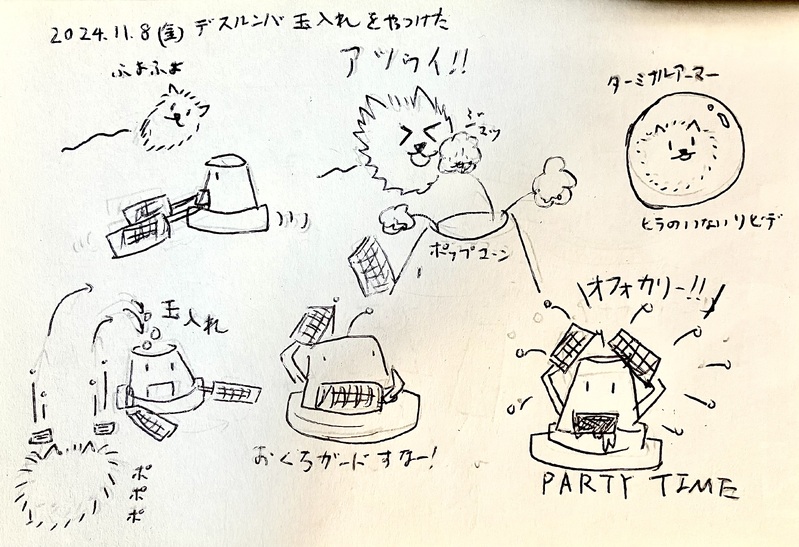 2024.11.8(金) デスルンバ 玉入れをやっつけた
ふよふよ
アツゥイ!!
ターミナルアーマー
ポップコーン
ヒラのいないリビデ
玉入れ
オフォカリー!!
おくちガードすなー!
ポポポ
PARTY TIME